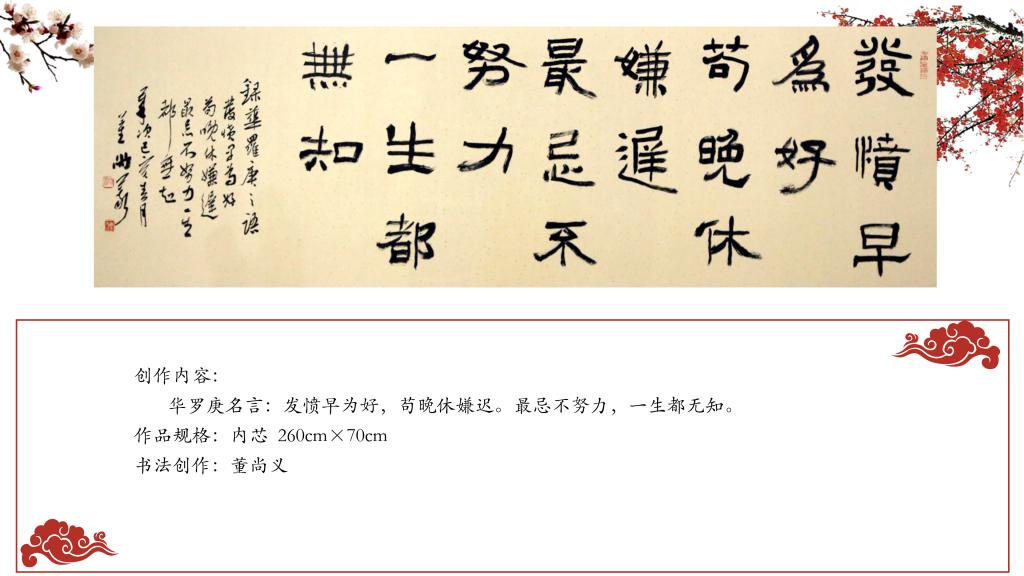 發憤早
為好
苟晚休
嫌遲
最忌不
努力
一生都
無知
錄華羅庚之語
發憤早為好
苟晚休嫌遲
最忌不努力一生
都無知
创作内容：
华罗庚名言：发愤早为好，苟晚休嫌迟。最忌不努力，一生都无知。
作品规格：内芯 260cm×70cm
书法创作：董尚义